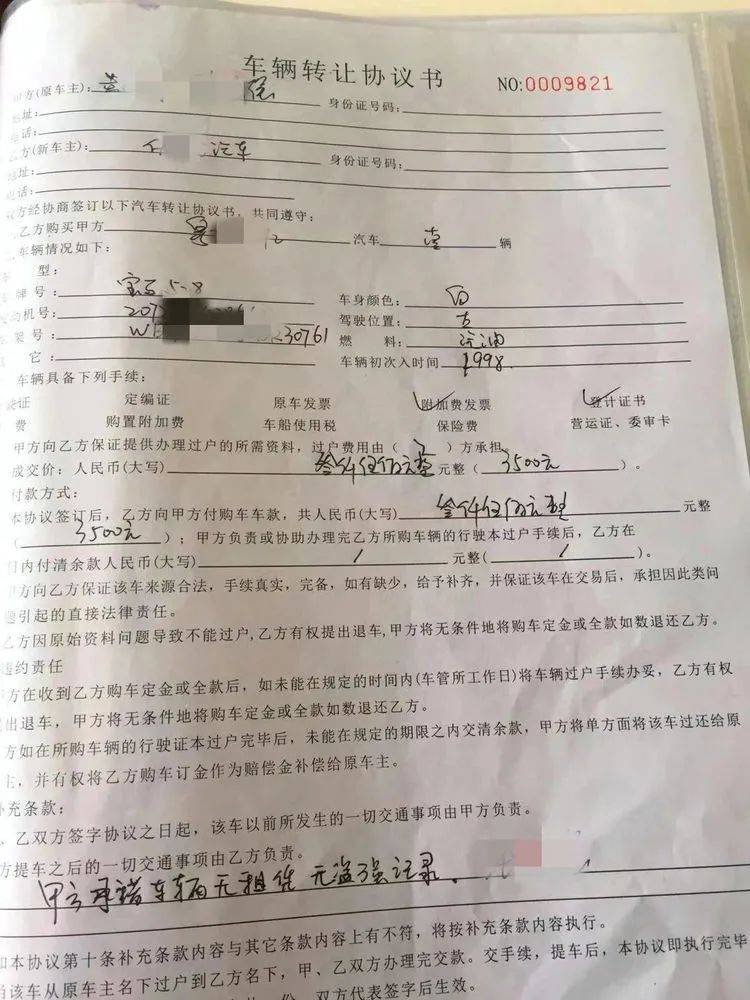 车辆转让协议书 NO:0009821
甲方(原车主): 身份证号码:
地址:
电话:
乙方(新车主): 汽车 身份证号码:
地址:
电话:
双方经协商签订以下汽车转让协议书,共同遵守:
乙方购买甲方 汽车 壹 辆
车辆情况如下:
型:
牌号: 车身颜色: 白
动机号: 207 驾驶位置: 左
架号: W 230761 燃 料: 汽油
它: 车辆初次入时间 1998.
车辆具备下列手续:
驶证 定编证 原车发票 附加费发票 登计证书
费 购置附加费 车船使用税 保险费 营运证、委审卡
甲方向乙方保证提供办理过户的所需资料,过户费用由( 乙 )方承担。
成交价:人民币(大写) 叁仟伍佰元整 元整( 3500元 )。
付款方式:
本协议签订后,乙方向甲方付购车车款,共人民币(大写) 叁仟伍佰元整 元整
( 3500元 );甲方负责或协助办理完乙方所购车辆的行驶本过户手续后,乙方在
日内付清余款人民币(大写) / 元整( / )。
甲方向乙方保证该车来源合法,手续真实,完备,如有缺少,给予补齐,并保证该车在交易后,承担因此类问
题引起的直接法律责任。
乙方因原始资料问题导致不能过户,乙方有权提出退车,甲方将无条件地将购车定金或全款如数退还乙方。
违约责任
方在收到乙方购车定金或全款后,如未能在规定的时间内(车管所工作日)将车辆过户手续办妥,乙方有权
出退车,甲方将无条件地将购车定金或全款如数退还乙方。
方如在所购车辆的行驶证本过户完毕后,未能在规定的期限之内交清余款,甲方将单方面将该车过还给原
主,并有权将乙方购车订金作为赔偿金补偿给原车主。
补充条款:
、乙双方签字协议之日起,该车以前所发生的一切交通事项由甲方负责。
方提车之后的一切交通事项由乙方负责。
甲方承诺车辆无抵押 无盗强记录.
如本协议第十条补充条款内容与其它条款内容上有不符,将按补充条款内容执行。
当该车从原车主名下过户到乙方名下,甲、乙双方办理完交款。交手续,提车后,本协议即执行完毕
份,双方代表签字后生效。